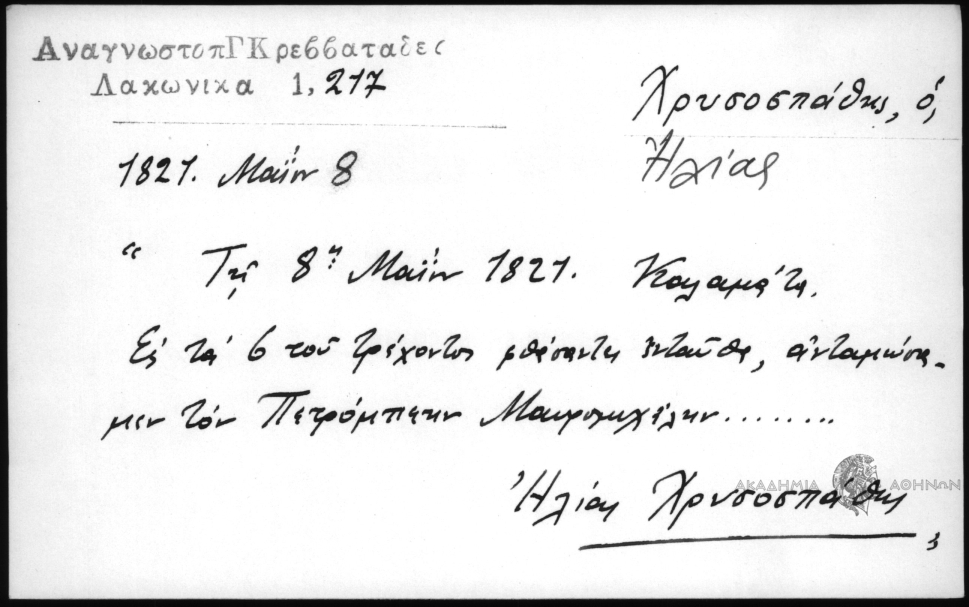 ΑναγνωστοπΓΚρεββαταδες
Λακωνικα 1, 217
Χρυσοσπάθης, ὁ,
Ἠλίας
1821. Μαΐου 8
“ Τῇ 8ῃ Μαΐου 1821. Καλαμάτα.
Εἰς τὰ 6 τοῦ τρέχοντος φθάσαντες ἐνταῦθα, ἀνταμώσα-
μεν τὸν Πετρόμπεην Μαυρομιχάλην........
Ἠλίας Χρυσοσπάθης
ΑΚΑΔΗΜΙΑ ΑΘΗΝΩΝ